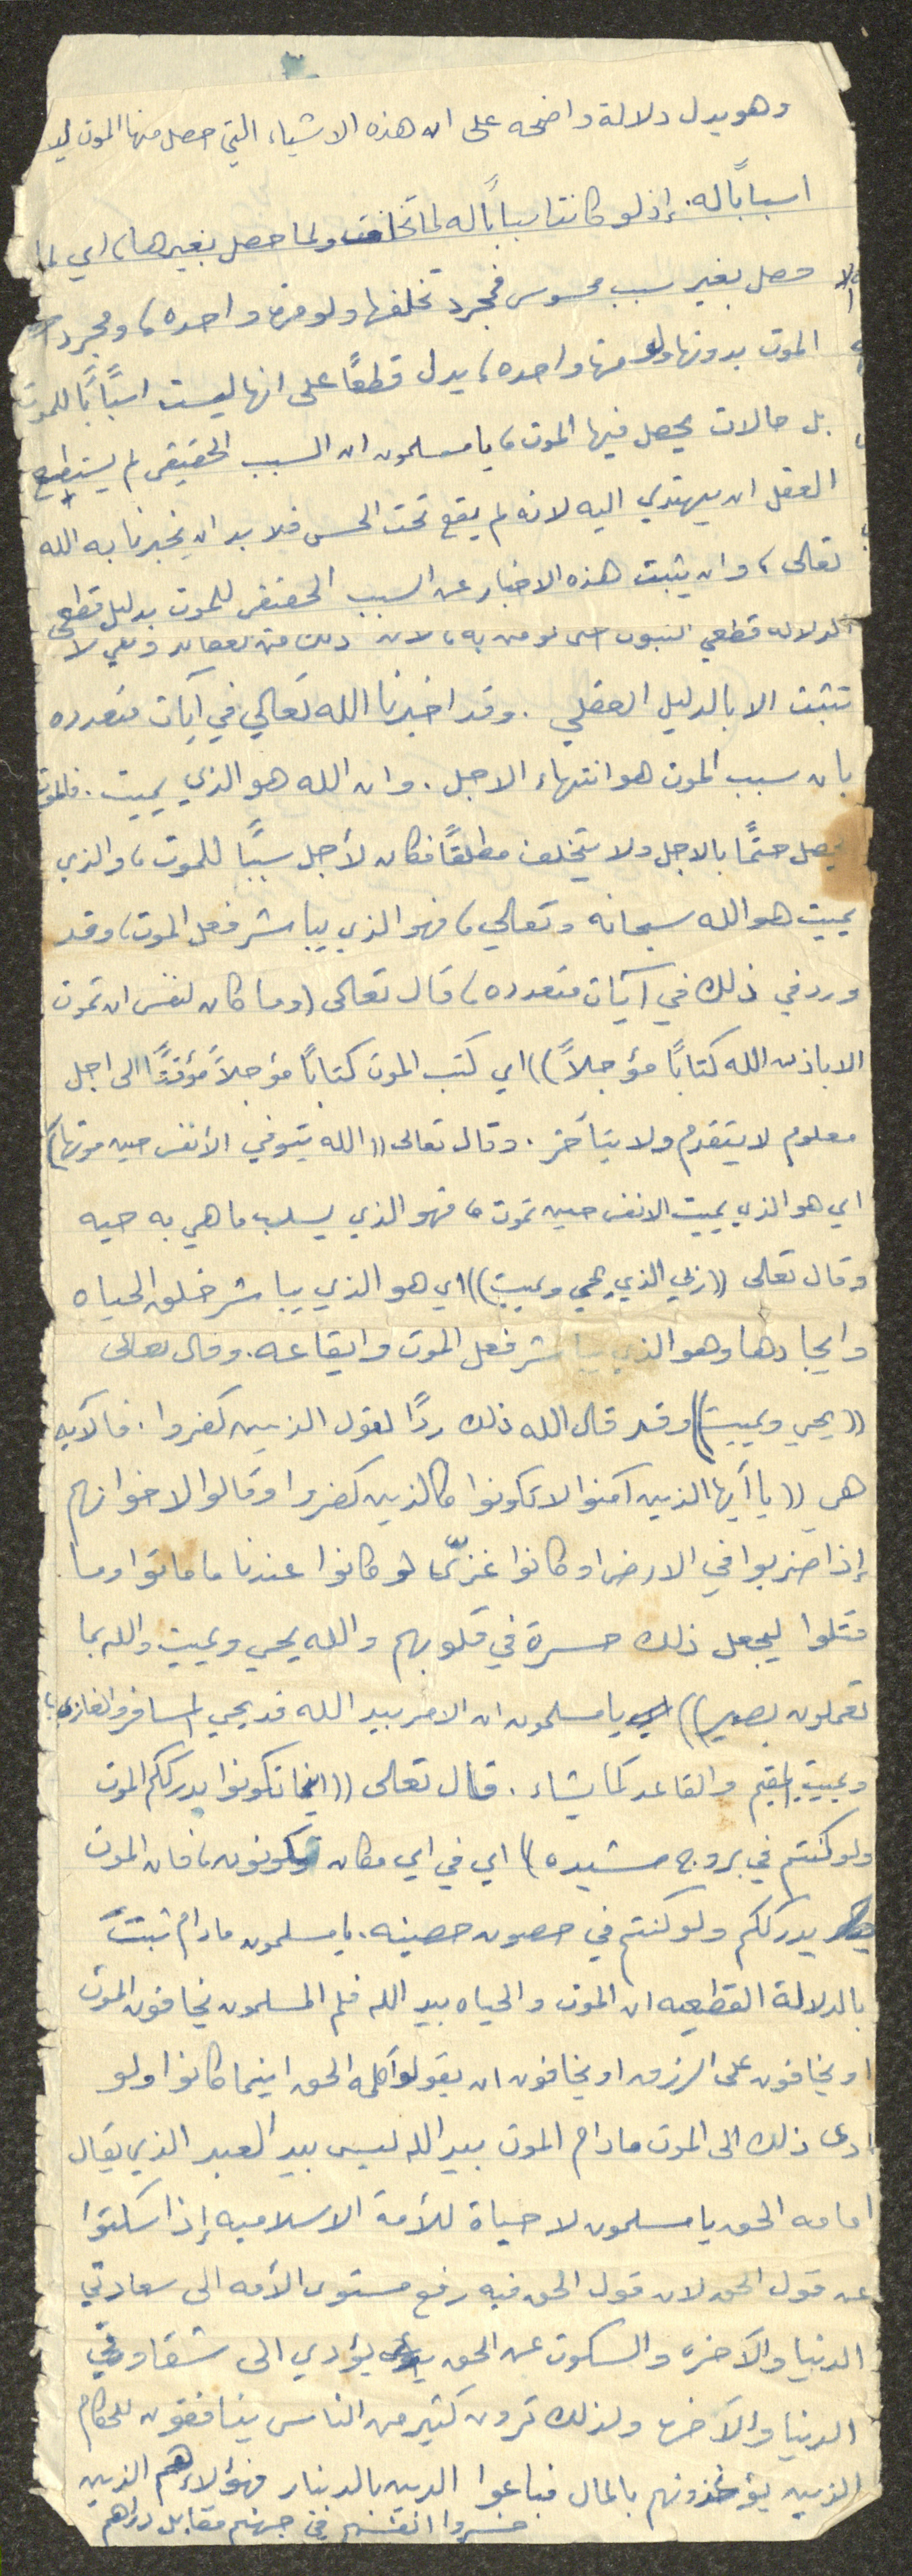 وهو يدل دلالة واضحه على ان هذه الاشياء التي حصل منها الموت ليـ
اسباباً له. إذ لو كانت اسباباً له لما تخلفت ولما حصل بغيرها، اي لما
حصل بغير سبب محسوس فمجرد تخلفها ولو مرة واحده، ومجرد
الموت بدونها ولو مرة واحده، يدل قطعاً على انها ليست اسباباً للموت
بل حالات يحصل فيها الموت، يا مسلمون ان السبب الحقيقي لم يستطع
العقل ان يهتدي اليه لانه لم يقع تحت الحس فلا بد ان يخبرنا به الله
تعالى، وان يثبت هذه الاخبار عن السبب الحقيقي للموت بدليل قطعي
الدلاله قطعي الثبوت حتى نؤمن به، لان ذلك من العقائد وهي لا
تثبت الا بالدليل العقلي. وقد اخبرنا الله تعالي في آيات متعدده
بان سبب الموت هو انتهاء الاجل. وان الله هو الذي يميت. فالموت
يحصل حتماً بالاجل ولا يتخلف مطلقاً فكان لأجل سبباً للموت، والذي
يميت هو الله سبحانه وتعالي، فهو الذي يباشر فعل الموت، وقد
ورد في ذلك في آيات متعدده، قال تعالى (وما كان لنفس ان تموت
الا باذن الله كتاباً مؤجلاً)) اي كتب الموت كتاباً مؤجلاً مؤقتاً الى اجل
معلوم لا يتقدم ولا يتآخر. وقال تعالى ((الله يتوفي الأنفس حين موتها))
اي هو الذي يميت الانفس حين تموت، فهو الذي يسلب ما هي به حيه
وقال تعالى ((ربي الذي يحي ويميت)) اي هو الذي يباشر خلق الحياه
وايجادها وهو الذي يباشر فعل الموت وايقاعه. وقال تعالى
((يحي ويميت)) وقد قال الله ذلك رداً لقول الذين كفروا. فالآيه
هي ((يا آيها الذين آمنوا لا تكونوا كالذين كفروا وقالوا لاخوانهم
إذا ضربوا في الارض او كانوا غزىّ لو كانوا عندنا ما ماتوا وما
قتلوا ليجعل ذلك حسرة في قلوبهم والله يحي ويميت والله بما
تعملون بصير)) يا مسلمون ان الامر بيد الله قد يحي المسافر والغازي
ويميت المقيم والقاعد كما يشاء. قال تعالى ((اينما تكونوا يدرككم الموت
ولو كنتم في بروج مشيده)) اي في اي مكان تكونون، فان الموت
يدرككم ولو كنتم في حصون حصينه. يا مسلمون مادام ثبتت
بالدلالة القطعيه ان الموت والحياه بيد الله فلم المسلمون يخافون الموت
او يخافون على الرزق او يخافون ان يقولوا كلمه الحق اينما كانوا ولو
ادى ذلك الى الموت مادام الموت بيد الله ليس بيد العبد الذي يقال
امامه الحق يا مسلمون لا حياة للأمة الاسلاميه إذا سكتوا
عن قول الحق لان قول الحق فيه رفع مستوى الأمه الى سعادتي
الدنيا والآخره والسكوت عن الحق يؤدي الى شقاوتي
الدنيا والآخره ولذلك ترون كثير من الناس ينافقون للحكام
الذين يؤخذونهم بالمال فباعوا الدين بالدينار فهؤلاء هم الذين
خسروا انفسهم في جهنم مقابل دراهم